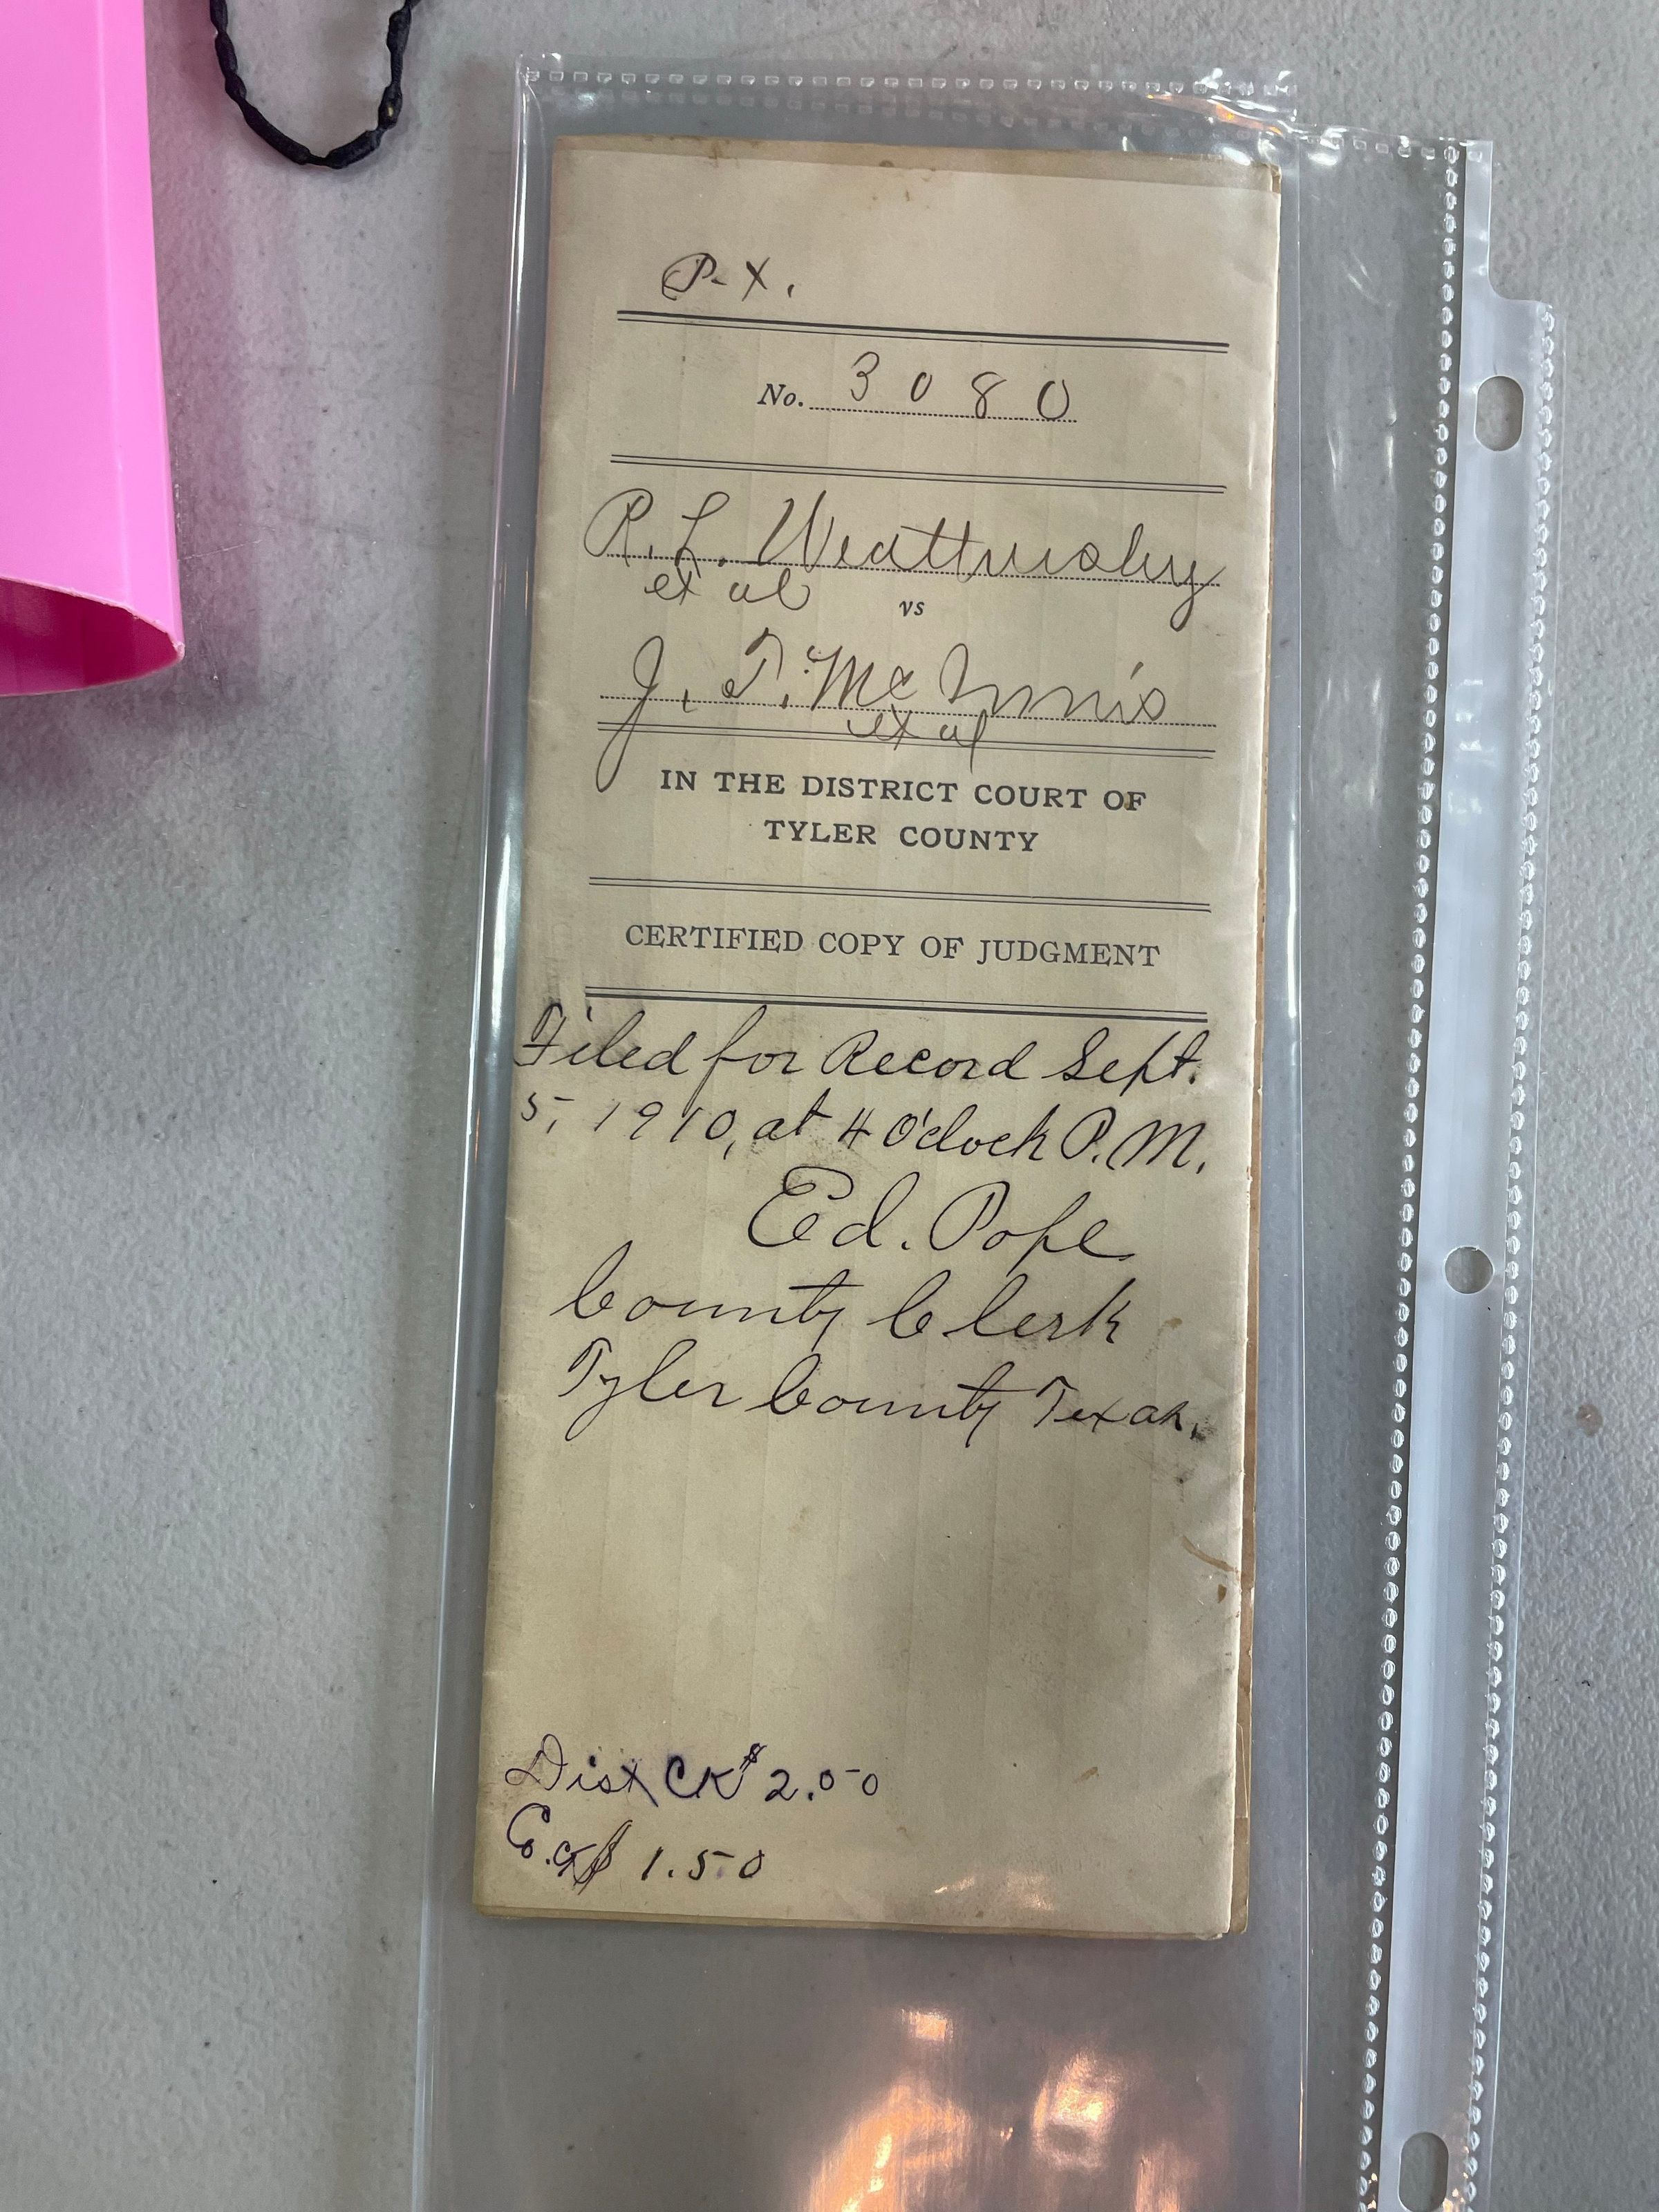 P. X.
No. 3080
R. L. Weathersby
et al
vs
J. T. McInnis
et al
IN THE DISTRICT COURT OF
TYLER COUNTY
CERTIFIED COPY OF JUDGMENT
Filed for Record Sept.
5, 1910, at 4 O'clock P.M.
Ed. Pope
County Clerk
Tyler County Texas.
Dist CK $ 2.00
Co. $ 1.50